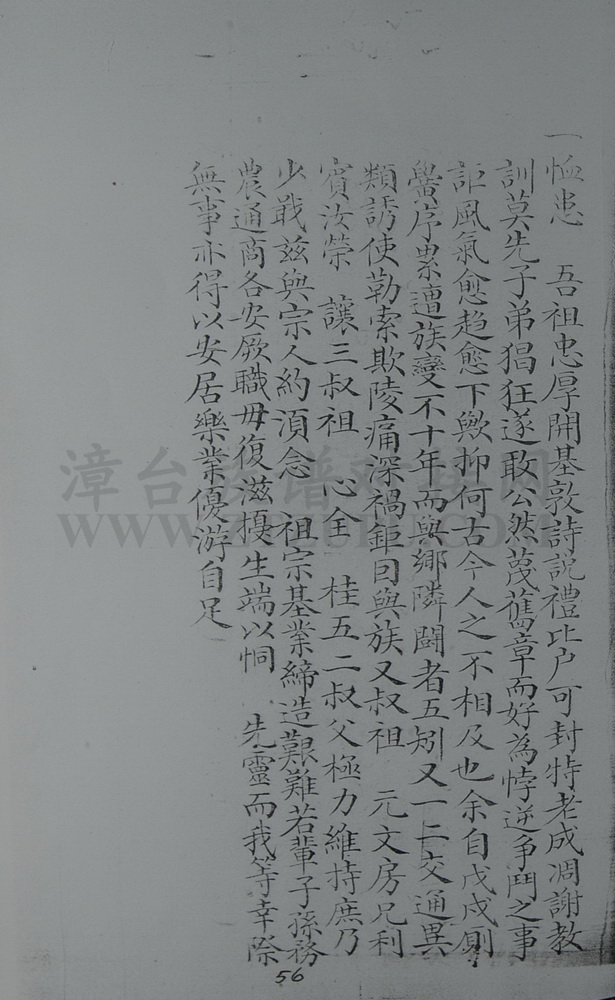 一恤患　吾祖忠厚開基敦詩説禮比户可封特老成凋謝教
訓莫先子弟猖狂遂敢公然蔑舊章而好為悖逆争鬥之事
詎風氣愈趋愈下歟抑何古今人之不相及也余自戊戌厠
黌序累遭族變不十年而與鄉隣鬪者五矧又一二交通異
類誘使勒索欺陵痛深禍鉅因與族又叔祖　元文房兄利
賓汝榮　讓三叔祖　心全　桂五二叔父極力維持庶乃
少戢兹與宗人約湏念　祖宗基業締造艱難若輩子孫務
農通商各安厥職毋復滋擾生端以恫　先靈而我等幸際
無事亦得以安居樂業優游自足
漳台族谱
WWW.
56